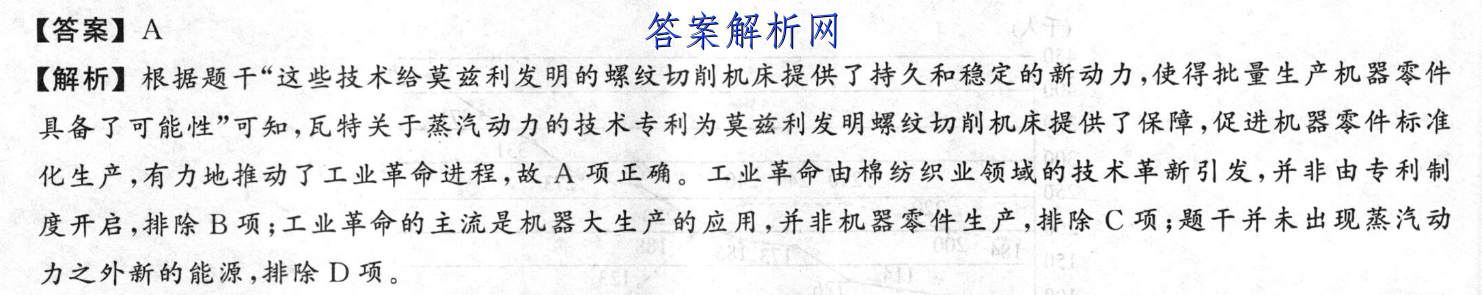 【答案】A
答案解析网
【解析】根据题干“这些技术给莫兹利发明的螺纹切削机床提供了持久和稳定的新动力,使得批量生产机器零件
具备了可能性”可知,瓦特关于蒸汽动力的技术专利为莫兹利发明螺纹切削机床提供了保障,促进机器零件标准
化生产,有力地推动了工业革命进程,故A项正确。工业革命由棉纺织业领域的技术革新引发,并非由专利制
度开启,排除B项;工业革命的主流是机器大生产的应用,并非机器零件生产,排除C项;题干并未出现蒸汽动
力之外新的能源,排除D项。